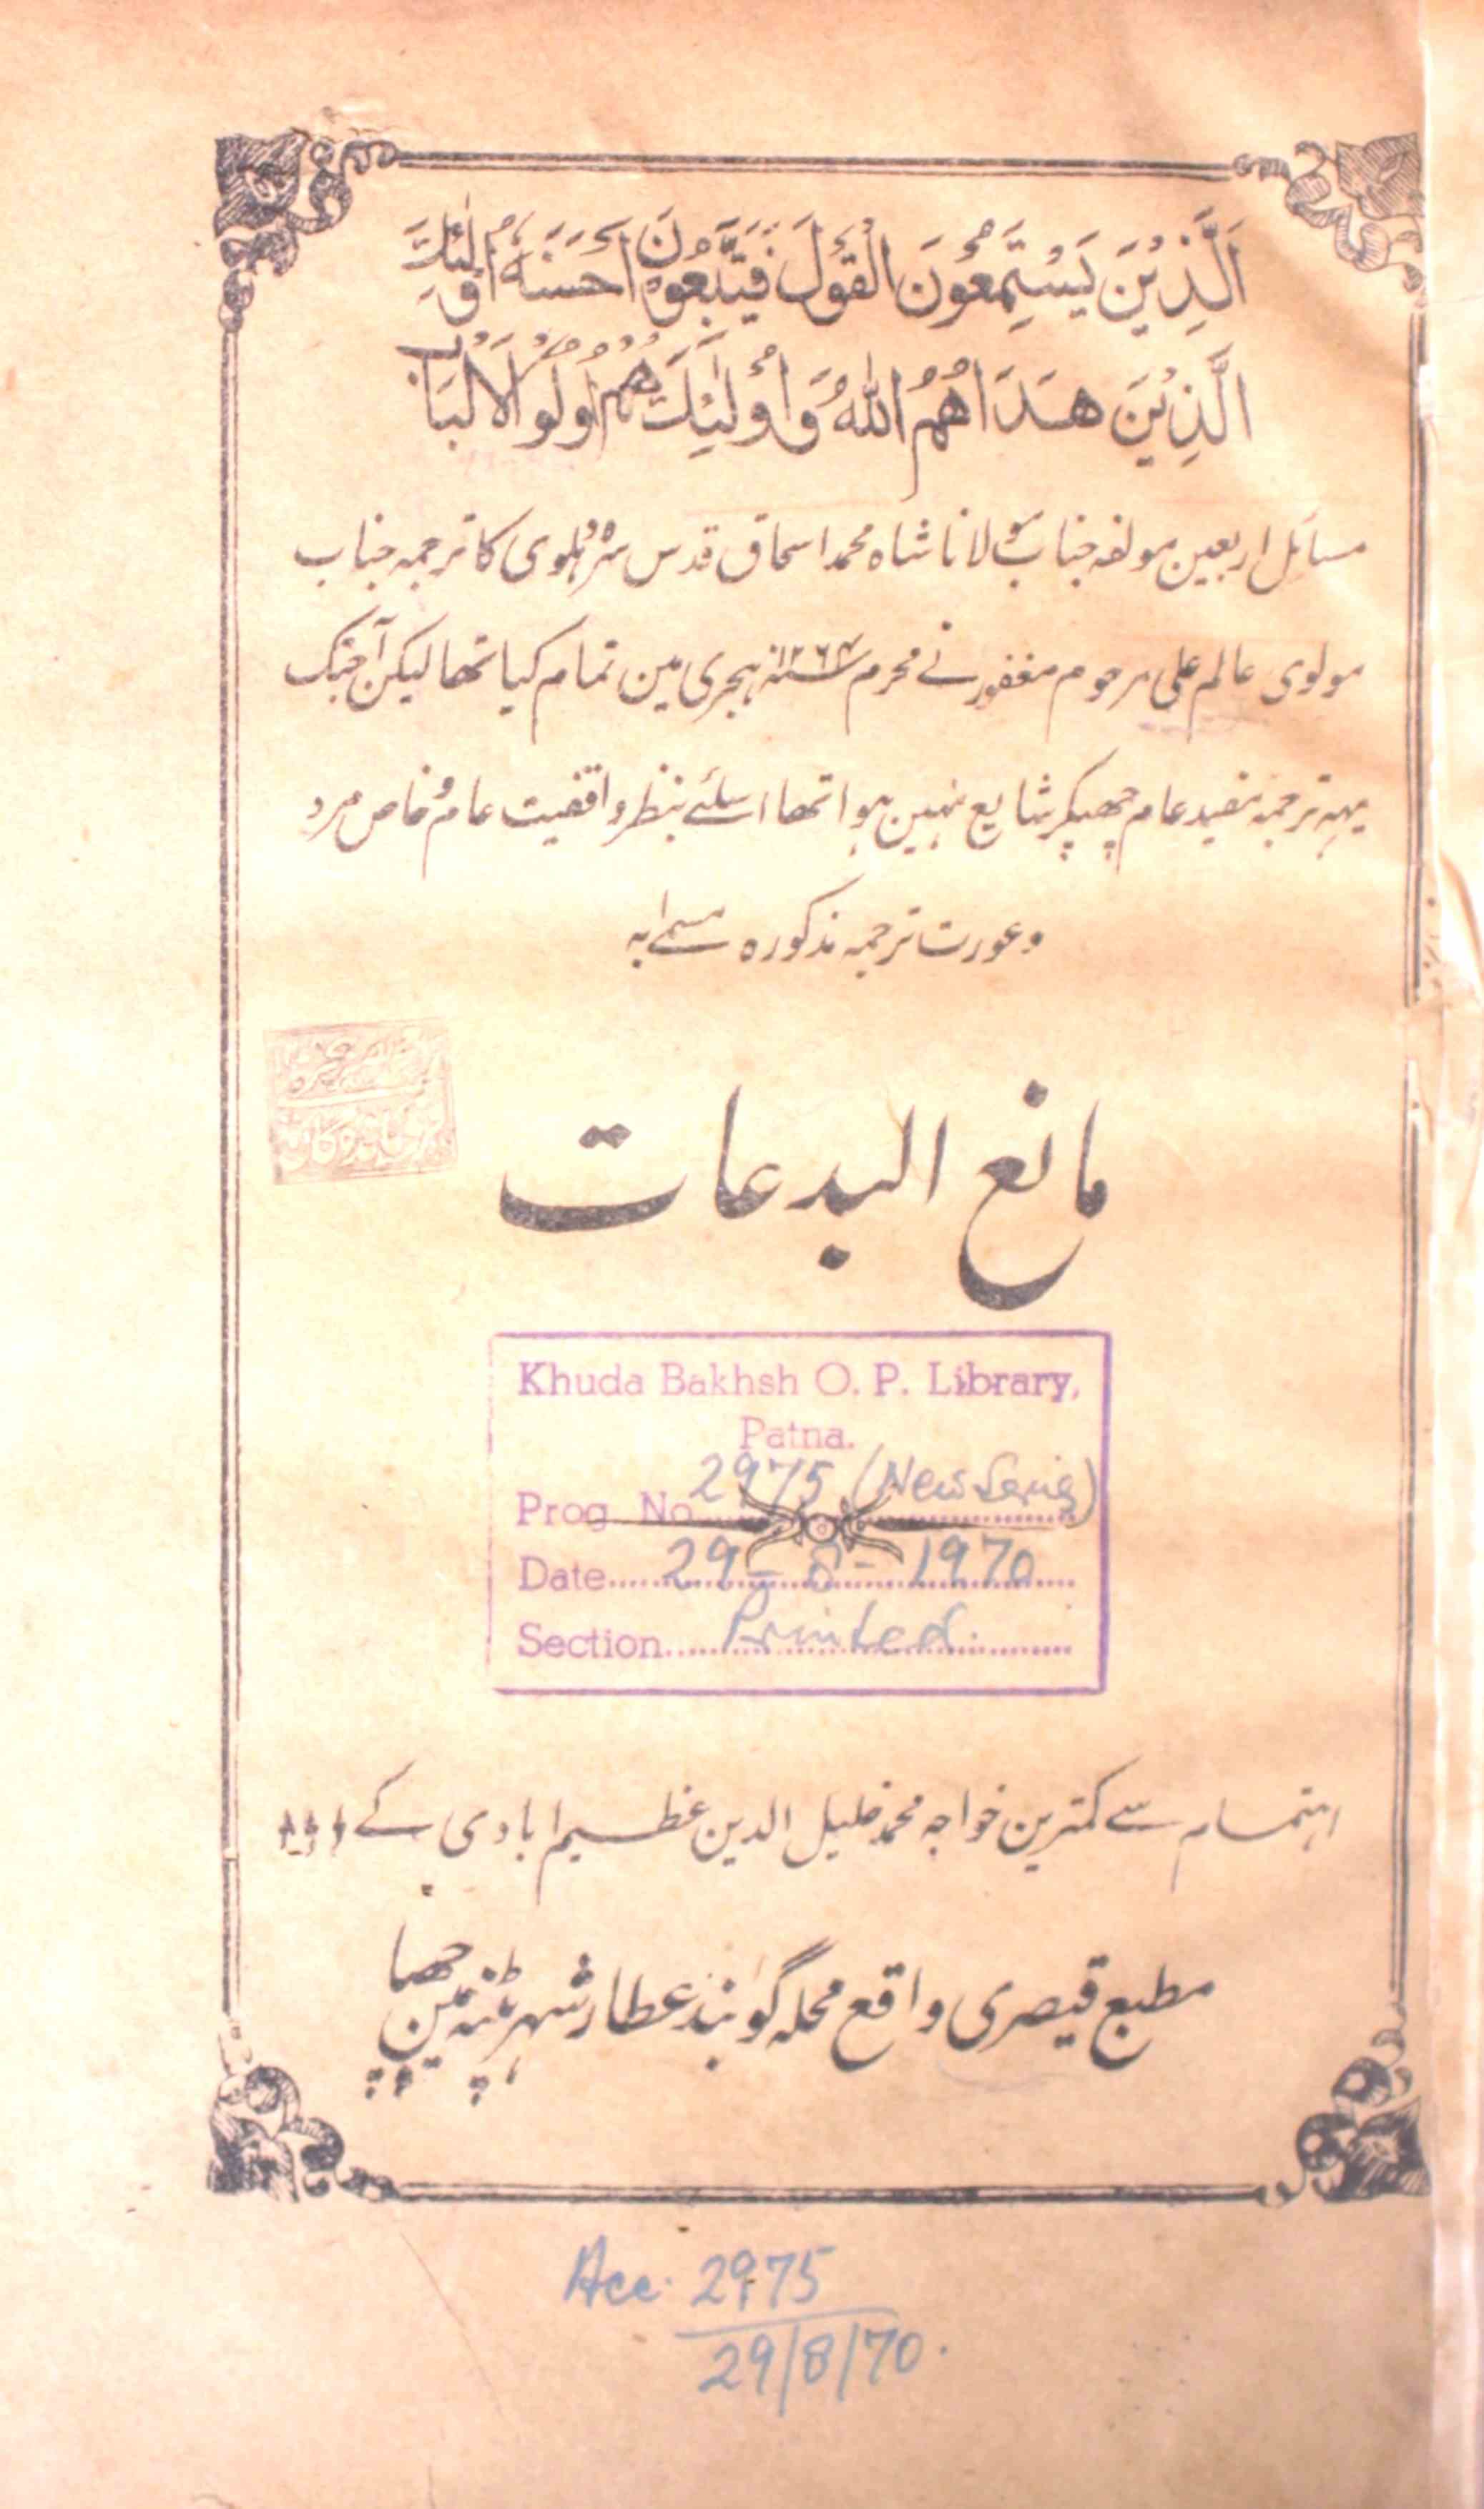 اَلَّذِيْنَ يَسْتَمِعُوْنَ الْقَوْلَ فَيَتَّبِعُوْنَ اَحْسَنَهٗ اُولٰئِكَ
الَّذِيْنَ هَدَاهُمُ اللّٰهُ وَاُولٰئِكَ هُمْ اُولُو الْاَلْبَابِ
مسائل اربعین مولفہ جناب مولانا شاہ محمد اسحاق قدس سرہ دہلوی کا ترجمہ جناب
مولوی عالم علی مرحوم مغفور نے محرم ۱۲۶۴ سنہ ہجری مین تمام کیا تھا لیکن آجتک
یہہ ترجمہ مفید عام چھپکر شایع نہین ہوا تھا اسلئے بنظر واقفیت عام و خاص مرد
و عورت ترجمہ مذکورہ مسمے بہ
مانع البدعات
Khuda Bakhsh O. P. Library,
Patna.
Prog No. 2975 (New Series)
Date 29-8-1970
Section Printed.
اہتمام سے کمترین خواجہ محمد خلیل الدین عظیم ابادی کے
مطبع قیصری واقع محلہ گوبند عطار شہر پٹنہ مین چھپا
Acc. 2975
29/8/70.